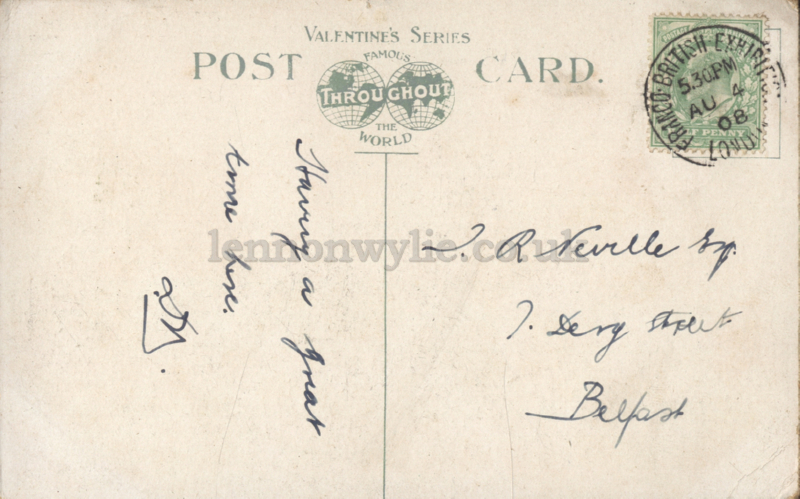 VALENTINE'S SERIES
POST CARD.
FAMOUS
THROUGHOUT
THE
WORLD
FRANCO-BRITISH EXHIBITION LONDON
5.30PM
AU 4
08
HALF PENNY
Having a great
time here.
R Neville Esq.
7. Derry street
Belfast
lennonwylie.co.uk